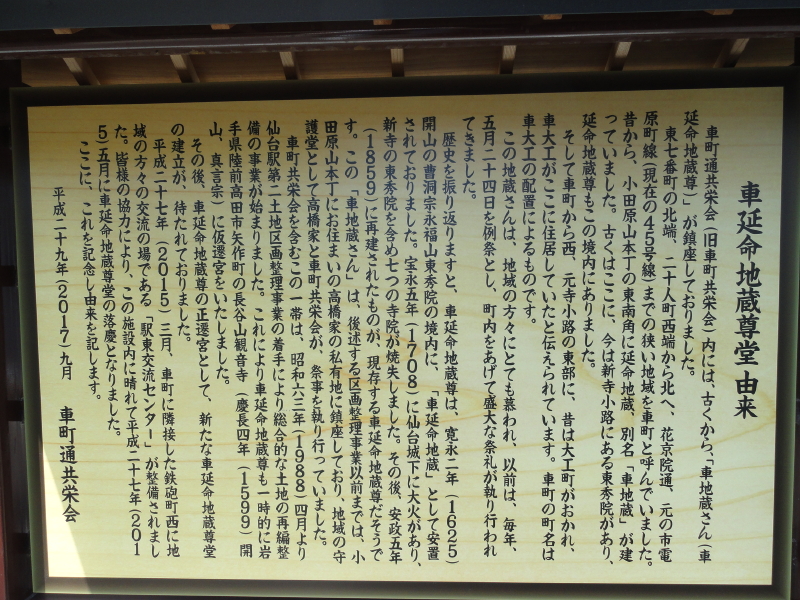 車延命地蔵尊堂 由来
車町通共栄会(旧車町共栄会)内には、古くから、「車地蔵さん(車
延命地蔵尊)」が鎮座しておりました。
東七番町の北端、二十人町西端から北へ、花京院通、元の市電
原町線(現在の45号線)までの狭い地域を車町と呼んでいました。
昔から、小田原山本丁の東南角に延命地蔵、別名「車地蔵」が建
っていました。古くはここに、今は新寺小路にある東秀院があり、
延命地蔵尊もこの境内にありました。
そして車町から西、元寺小路の東部に、昔は大工町がおかれ、
車大工がここに住居していたと伝えられています。車町の町名は
車大工の配置によるものです。
この地蔵さんは、地域の方々にとても慕われ、以前は、毎年、
五月二十四日を例祭とし、町内をあげて盛大な祭礼が執り行われ
てきました。
歴史を振り返りますと、車延命地蔵尊は、寛永二年(1625)
開山の曹洞宗永福山東秀院の境内に、「車延命地蔵」として安置
されておりました。宝永五年(1708)に仙台城下に大火があり、
新寺の東秀院を含め七つの寺院が焼失しました。その後、安政五年
(1859)に再建されたものが、現存する車延命地蔵尊だそうで
す。この「車地蔵さん」は、後述する区画整理事業以前までは、小
田原山本丁にお住まいの高橋家の私有地に鎮座しており、地域の守
護堂として高橋家と車町共栄会が、祭事を執り行っていました。
車町共栄会を含むこの一帯は、昭和六三年(1988)四月より
仙台駅第二土地区画整理事業の着手により総合的な土地の再編整
備の事業が始まりました。これにより車延命地蔵尊も一時的に岩
手県陸前高田市矢作町の長谷山観音寺(慶長四年(1599)開
山、真言宗)に仮遷宮をいたしました。
その後、車延命地蔵尊の正遷宮として、新たな車延命地蔵尊堂
の建立が、待たれておりました。
平成二十七年(2015)三月、車町に隣接した鉄砲町西に地
域の方々の交流の場である「駅東交流センター」が整備されまし
た。皆様の協力により、この施設内に晴れて平成二十七年(201
5)五月に車延命地蔵尊堂の落慶となりました。
ここに、これを記念し由来を記します。
平成二十九年(2017)九月 車町通共栄会